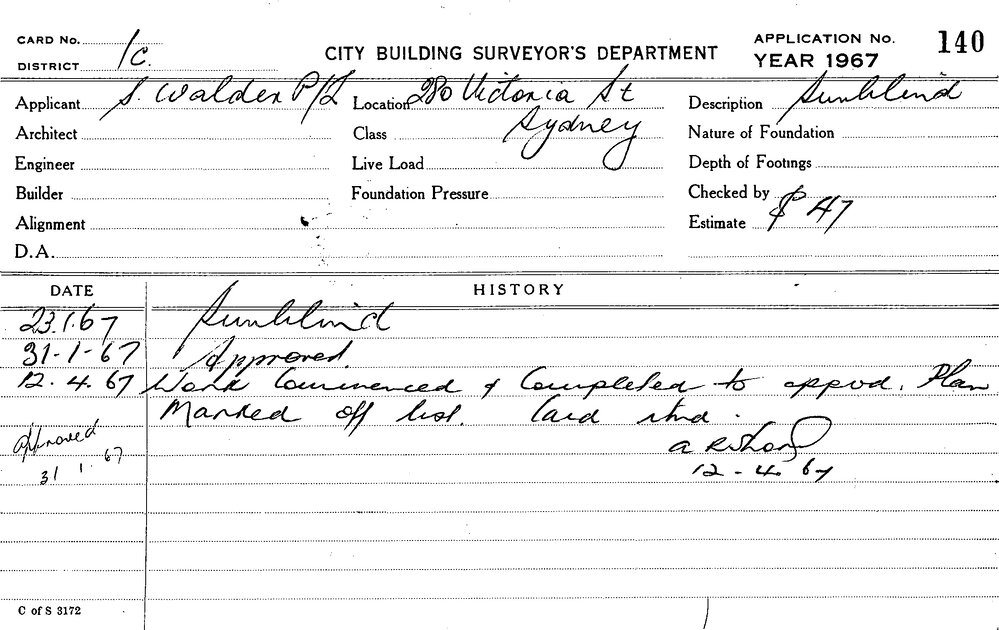 CARD No.
DISTRICT 1C.
CITY BUILDING SURVEYOR'S DEPARTMENT
APPLICATION No. 140
YEAR 1967
Applicant S. Walder P/L
Location 280 Victoria St
Sydney
Description Sunblind
Architect
Class
Nature of Foundation
Engineer
Live Load
Depth of Footings
Builder
Foundation Pressure
Checked by
Alignment
Estimate $ 47
D.A.
DATE
HISTORY
23.1.67 Sunblind
31-1-67 Approved
12.4.67 Work Commenced & Completed to appvd. Plan
Marked off list. Card rtnd.
12-4-67
Approved
31 1.67
C of S 3172